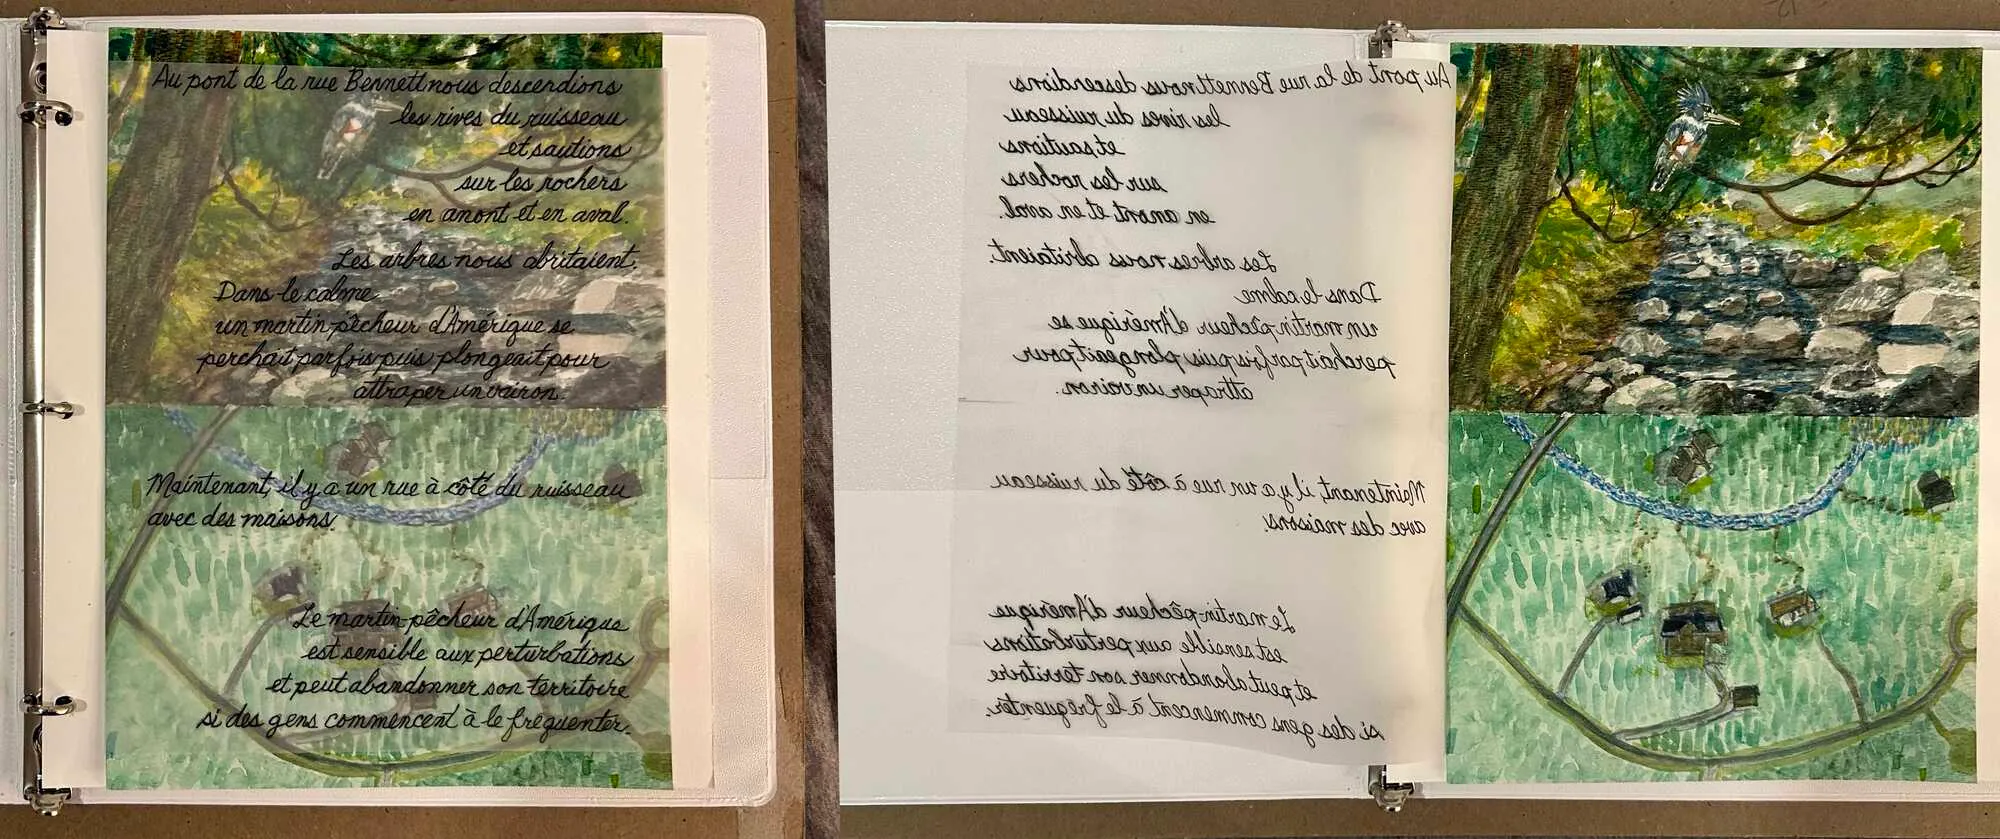 Au pont de la rue Bennett nous descendions
les rives du ruisseau
et sautions
sur les rochers
en amont et en aval.
Les arbres nous abritaient.
Dans le calme
un martin-pêcheur d'Amérique se
perchait parfois puis plongeait pour
attraper un vairon.
Maintenant, il y a un rue à côté du ruisseau
avec des maisons.
Le martin-pêcheur d'Amérique
est sensible aux perturbations
et peut abandonner son territoire
si des gens commencent à le fréquenter.
Au pont de la rue Bennett nous descendions
les rives du ruisseau
et sautions
sur les rochers
en amont et en aval.
Les arbres nous abritaient.
Dans le calme
un martin-pêcheur d'Amérique se
perchait parfois puis plongeait pour
attraper un vairon.
Maintenant, il y a un rue à côté du ruisseau
avec des maisons.
Le martin-pêcheur d'Amérique
est sensible aux perturbations
et peut abandonner son territoire
si des gens commencent à le fréquenter.